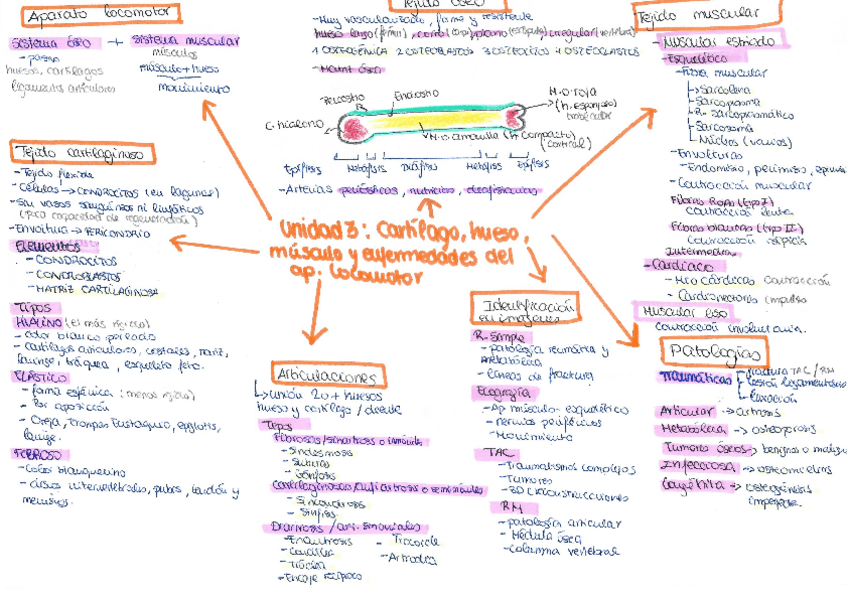 Aparato locomotor
Sistema óseo + Sistema muscular
- pasivo
músculos
huesos, cartílagos
músculo + hueso
ligamentos articulares
movimiento
Tejido óseo
- Muy vascularizado, firme y resistente
hueso largo (fémur), corto (carpo), plano (escápula), irregular (vértebra)
1 OSTEOGÉNICA 2 OSTEOBLASTOS 3 OSTEOCITOS 4 OSTEOCLASTOS
- Matriz ósea
Periostio
Endostio
M.O. roja
(h. esponjoso)
trabecular
C. hialino
M.O. amarilla (H. compacto)
(cortical)
Epífisis Metáfisis Diáfisis Metáfisis Epífisis
- Arterias periósticas, nutricias, diafisiarias
Tejido muscular
- Muscular estriado
- Esquelético
- Fibra muscular
Sarcolema
Sarcoplasma
R. Sarcoplasmático
Sarcosoma
Núcleos (varios)
- Envolturas
- Endomisio, perimisio,
- Contracción muscular
Fibras Rojas (tipo I)
contracción lenta
Fibras blancas (tipo II)
contracción rápida
Intermedias
- Cardíaco
- Mio cárdicas contracción
- Cardionectores impulso
Muscular liso
contracción involuntaria.
Tejido cartilaginoso
- Tejido flexible
- Células → CONDROCITOS (en lagunas)
- Sin vasos sanguíneos ni linfáticos
(poca capacidad de regeneración)
- Envoltura → PERICONDRIO
Elementos
- CONDROCITOS
- CONDROBLASTOS
- MATRIZ CARTILAGINOSA
Tipos
HIALINO (el más rígido)
- color blanco perlado
- cartílagos articulares, costales, nariz,
laringe, tráquea, esqueleto feto.
ELÁSTICO
- forma esférica (menos rígido)
- Por aposición
- Oreja, trompas Eustaquio, epiglotis,
laringe.
FIBROSO
- Color blanquecino
- discos intervertebrales, pubis, tendón y
meniscos.
Unidad 3: Cartílago, hueso,
músculo y enfermedades del
ap. locomotor
Articulaciones
unión 2 o + huesos
hueso y cartílago / diente
Tipos
Fibrosas/sinartrosis o inmóviles
- Sindesmosis
- Suturas
- Gónfosis
Cartilaginosas/anfiartrosis o semimóviles
- Sincondrosis
- Sínfisis
Diartrosis / art. sinoviales
- Enartrosis
- Trocoide
- Condílea
- Artrodia
- Tróclea
- Encaje recíproco
Identificación
en imágenes
R. Simple
- patología reumática y
metabólica
- Líneas de fractura
Ecografía
- Ap músculo-esquelético
- nervios periféricos
- Movimiento
TAC
- Traumatismos complejos
- Tumores
- 3D reconstrucciones
RM
- patología articular
- Médula ósea
- Columna vertebral
Patologías
Traumáticas
fractura TAC / RM
lesión ligamentosa
luxación
Articular → artrosis
Metabólica → osteoporosis
Tumores óseos → benignos o malignos
Infecciosa → osteomielitis
Congénita → osteogénesis
imperfecta.